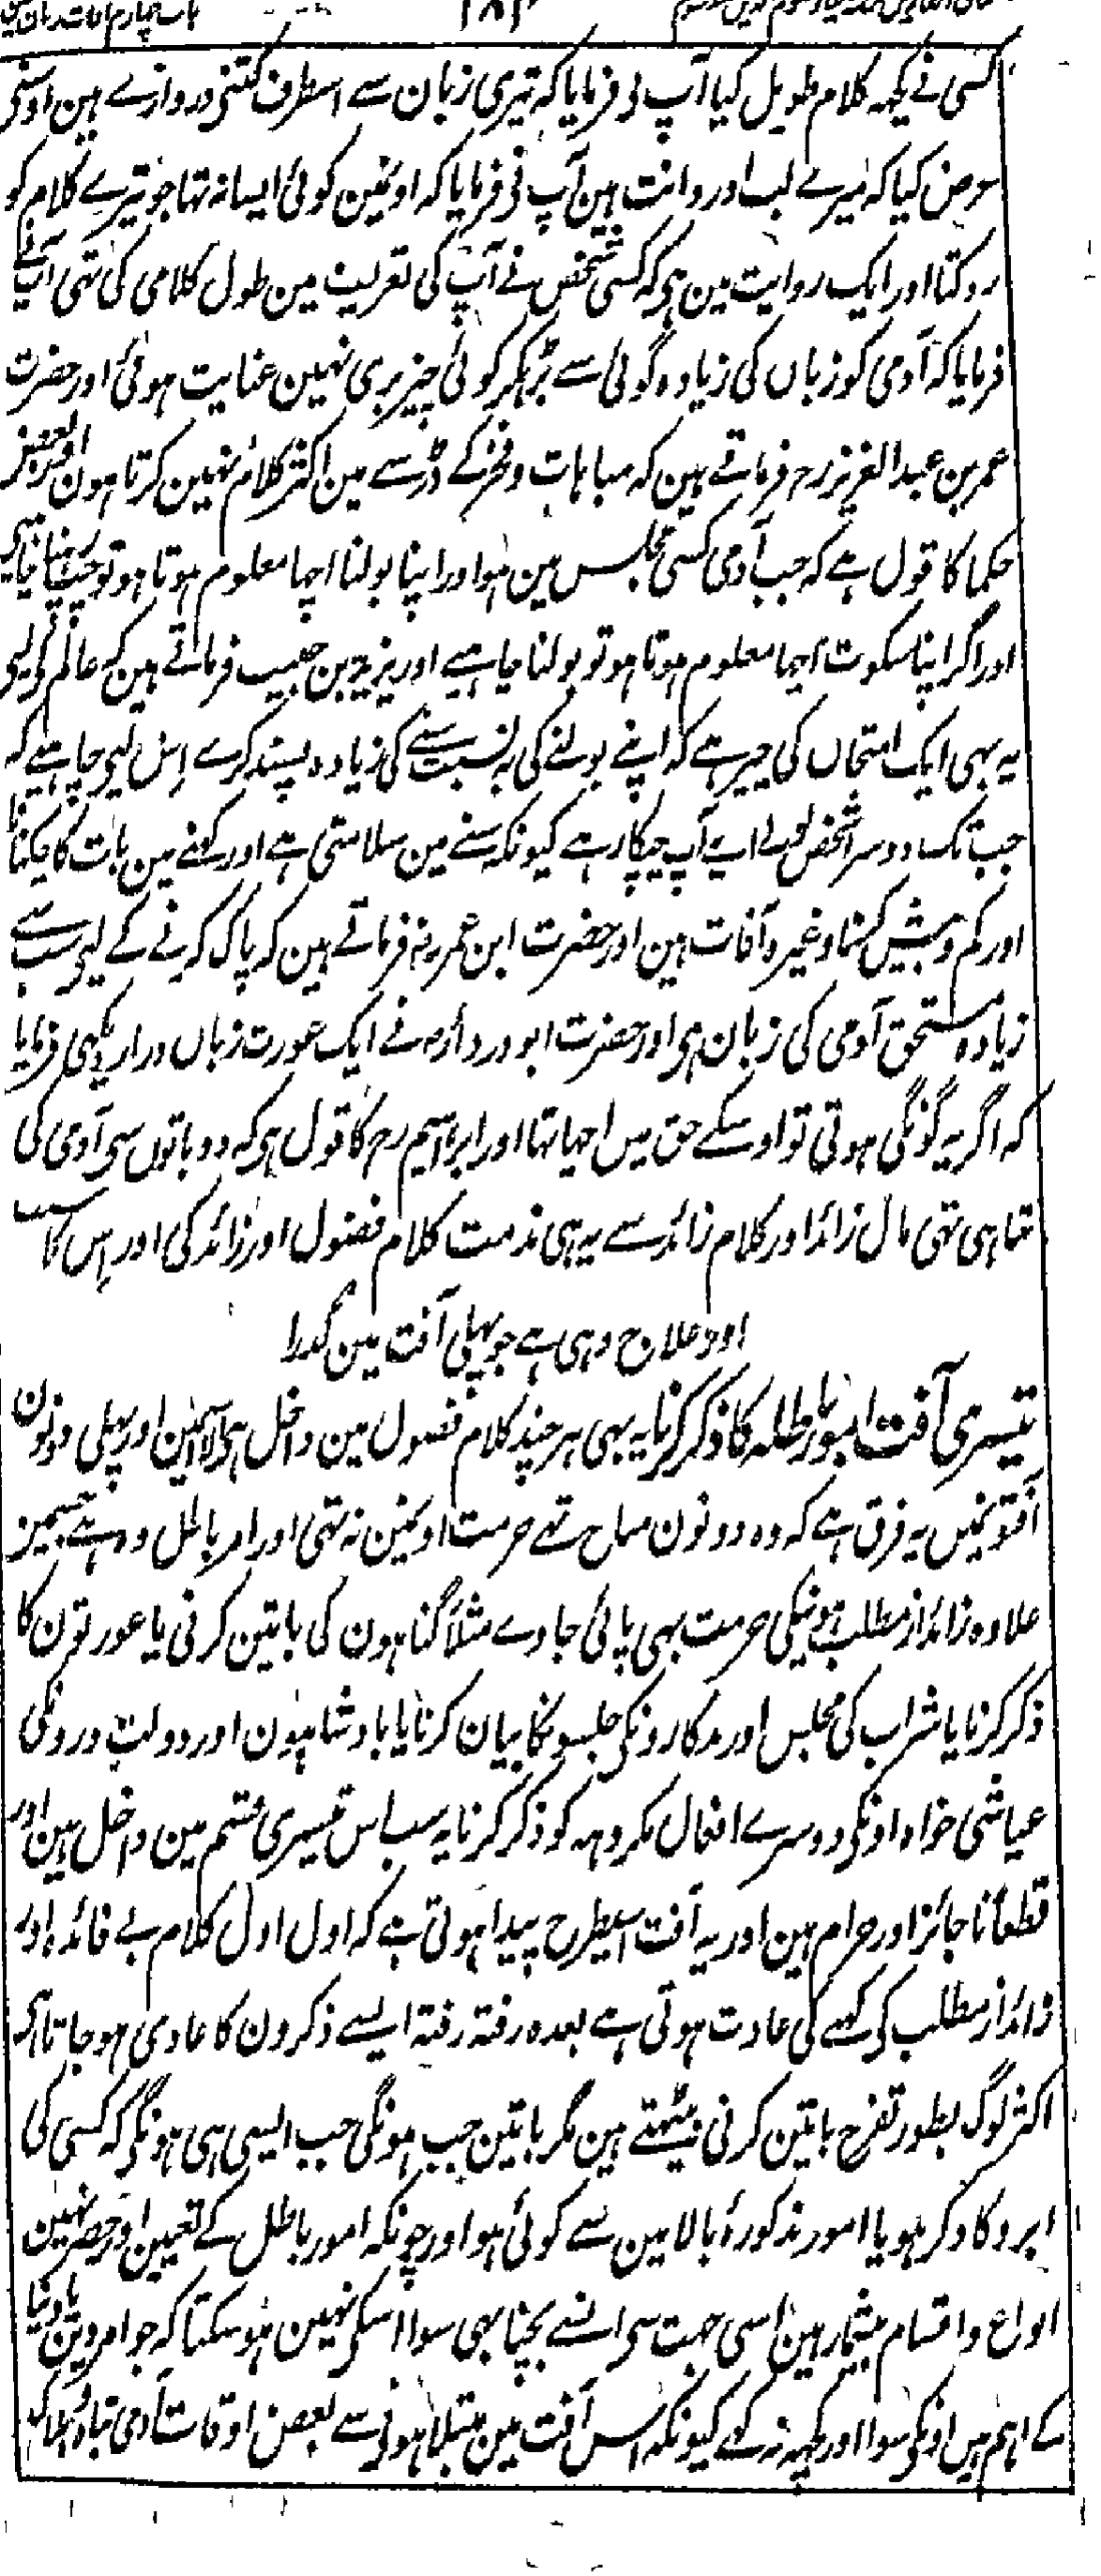 ۱۸۲
کسی نے کچہہ کلام طویل کیا آپ نی فرمایا کہ تیری زبان سے اسطرف کتنی دروازے ہین اوسنی
عرض کیا کہ میرے لب اور دانت ہین آپ نی فرمایا کہ اونمین کوئی ایسا نہ تہا جو تیرے کلام کو
روکتا اور ایک روایت مین ہی کہ کسی شخص نے آپ کی تعریف مین طول کلامی کی تہی آپنے
فرمایا کہ آدمی کو زباں کی زیادہ گوئی سے بڑہکر کوئی چیز بری نہین عنایت ہوئی اور حضرت
عمر بن عبد العزیز رح فرماتے ہین کہ مباہات و فخر کے ڈر سے مین اکثر کلام نہین کرتا ہون اور بعض
حکما کا قول ہے کہ جب آدمی کسی مجلس مین ہو اور اپنا بولنا اچہا معلوم ہوتا ہو تو چپ رہنا چاہیی
اور اگر اپنا سکوت اچہا معلوم ہوتا ہو تو بولنا چاہیے اور یزید بن حبیب فرماتے ہین کہ عالم کی لیی
یہ بہی ایک امتحاں کی چیز ہے کہ اپنے بولنے کی بہ نسبت سننے کی زیادہ پسند کرے اس لیی چاہیے کہ
جب تک دوسرا شخص بولے اپنے آپ چپکا رہے کیونکہ سننے مین سلامتی ہے اور کہنے مین بات کا چکنانا
اور کم و بیش کہنا وغیرہ آفات ہین اور حضرت ابن عمر رض فرماتے ہین کہ پاک کرنے کے لیی سب سے
زیادہ مستحق آدمی کی زبان ہی اور حضرت ابو دردا رض نے ایک عورت زباں دراز دیکہی فرمایا
کہ اگر یہ گونگی ہوتی تو اوسکے حق میں اچہا تہا اور ابراہیم رح کا قول ہی کہ دو باتوں سی آدمی کی
تباہی تہی مال زائد اور کلام زائد سے یہ ہی مذمت کلام فضول اور زائد کی اور اس کا سبب
اور علاج وہی ہے جو پہلی آفت مین گذرا
تیسری آفت امور باطلہ کا ذکر کرنا یہ بہی ہر چند کلام فضول مین داخل ہی الا اسمین اور پہلی دونون
آفتونمیں یہ فرق ہے کہ وہ دونون مباح تہے حرمت اونمین نہ تہی اور امر باطل وہ ہے جسمین
علاوہ زائد از مطلب ہونیکی حرمت بہی پائی جاوے مثلاً گناہون کی باتین کرنی یا عورتون کا
ذکر کرنا یا شراب کی مجلس اور بدکارونکی جلسونکا بیان کرنا یا بادشاہون اور دولت ورونکی
عیاشی خواہ اونکی دوسرے افعال مکروہہ کو ذکر کرنا یہ سب اس تیسری قسم مین داخل ہین اور
قطعاً ناجائز اور حرام ہین اور یہ آفت اسیطرح پیدا ہوتی ہے کہ اول اول کلام بے فائدہ اور
زائد از مطلب کی کہنے کی عادت ہوتی ہے بعدہ رفتہ رفتہ ایسے ذکرون کا عادی ہو جاتا ہی
اکثر لوگ بطور تفرح باتین کرنی بیٹہتے ہین مگر باتین جب ہونگی جب ایسی ہی ہونگی کہ کسی کی
ابرو کا ذکر ہو یا امور مذکورۂ بالا مین سے کوئی ہو اور چونکہ امور باطل کے تعین اور حصر نہین
انواع و اقسام بیشمار ہین اسی جہت سی انسے بچنا بہی سوا اسکی نہین ہو سکتا کہ جو امر دین یا دنیا
کے اہم ہیں اونکی سوا اور کچہہ نہ کہے کیونکہ اس آفت مین مبتلا ہونی سے بعض اوقات آدمی تباہ و ہلاک